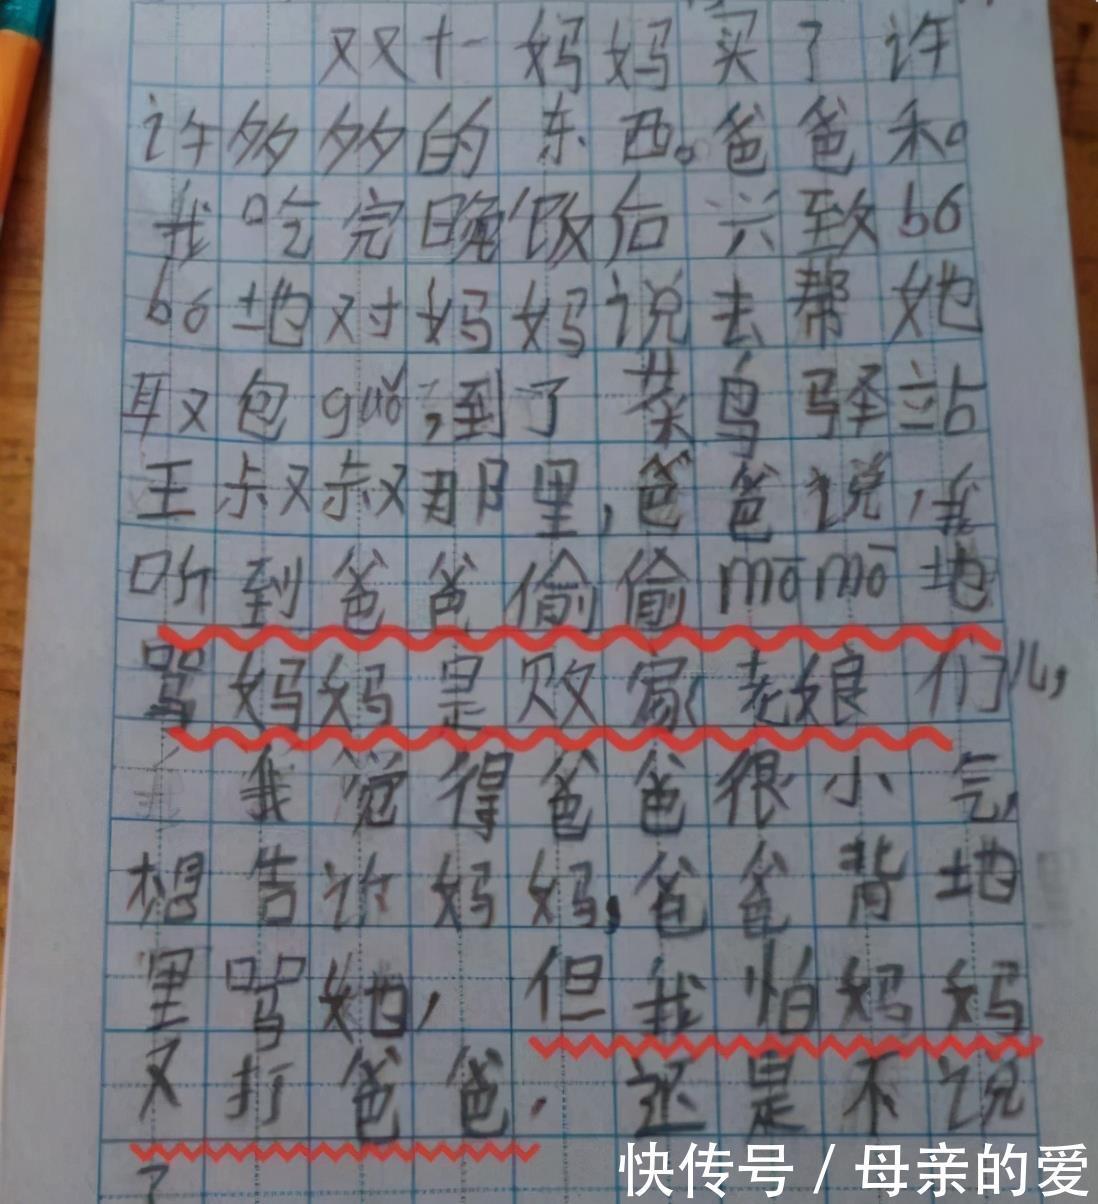 双十一妈妈买了许
许多多的东西。爸爸和。
我吃完晚饭后兴致bó
bó地对妈妈说去帮她
取包guǒ,到了菜鸟驿站
王叔叔那里,爸爸说,我
听到爸爸偷偷mōmō地
骂妈妈是败家老娘们儿,
我觉得爸爸很小气,
想告许妈妈,爸爸背地
里骂她,但我怕妈妈
又打爸爸.还是不说
了
快传号/母亲的爱